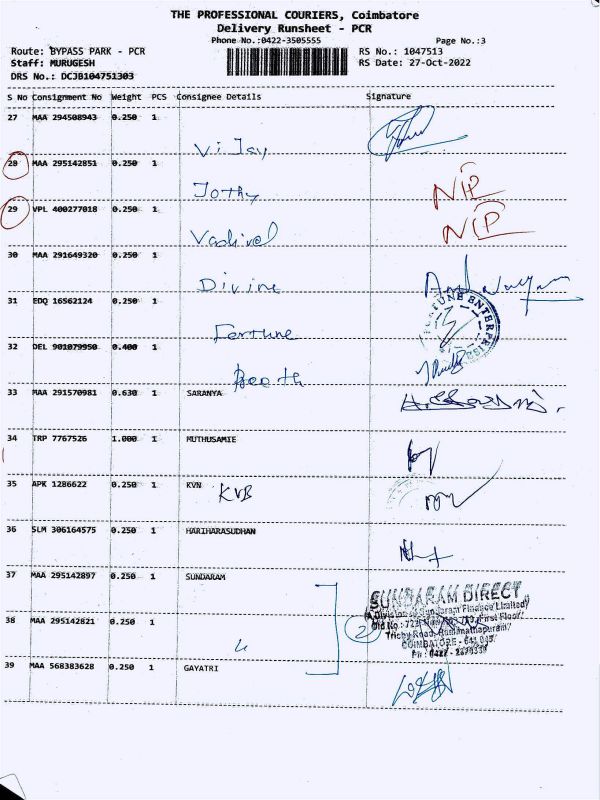 THE PROFESSIONAL COURIERS, Coimbatore
Delivery Runsheet - PCR
Phone No.:0422-3505555
Page No.:3
Route: BYPASS PARK - PCR
RS No.: 1047513
Staff: MURUGESH
RS Date: 27-Oct-2022
DRS No.: DCJB104751303
S No Consignment No Weight PCS Consignee Details Signature
27 MAA 294508943 0.250 1
Vijay
28 MAA 295142851 0.250 1
Jothy NIP
29 VPL 400277018 0.250 1
Vadivel NIP
30 MAA 291649320 0.250 1
Divine
31 EDQ 16562124 0.250 1
Fortune
FORTUNE ENTERPRISES
32 DEL 901079950 0.400 1
33 MAA 291570981 0.630 1 SARANYA
34 TRP 7767526 1.000 1 MUTHUSAMIE
35 APK 1286622 0.250 1 KVN
KVB
36 SLM 306164575 0.250 1 HARIHARASUDHAN
37 MAA 295142897 0.250 1 SUNDARAM
SUNDARAM DIRECT
(A Division of Sundaram Finance Limited)
First Floor
38 MAA 295142821 0.250 1
2
Trichy Road, Ramanathapuram
COIMBATORE - 641 045
39 MAA 568383628 0.250 1 GAYATRI